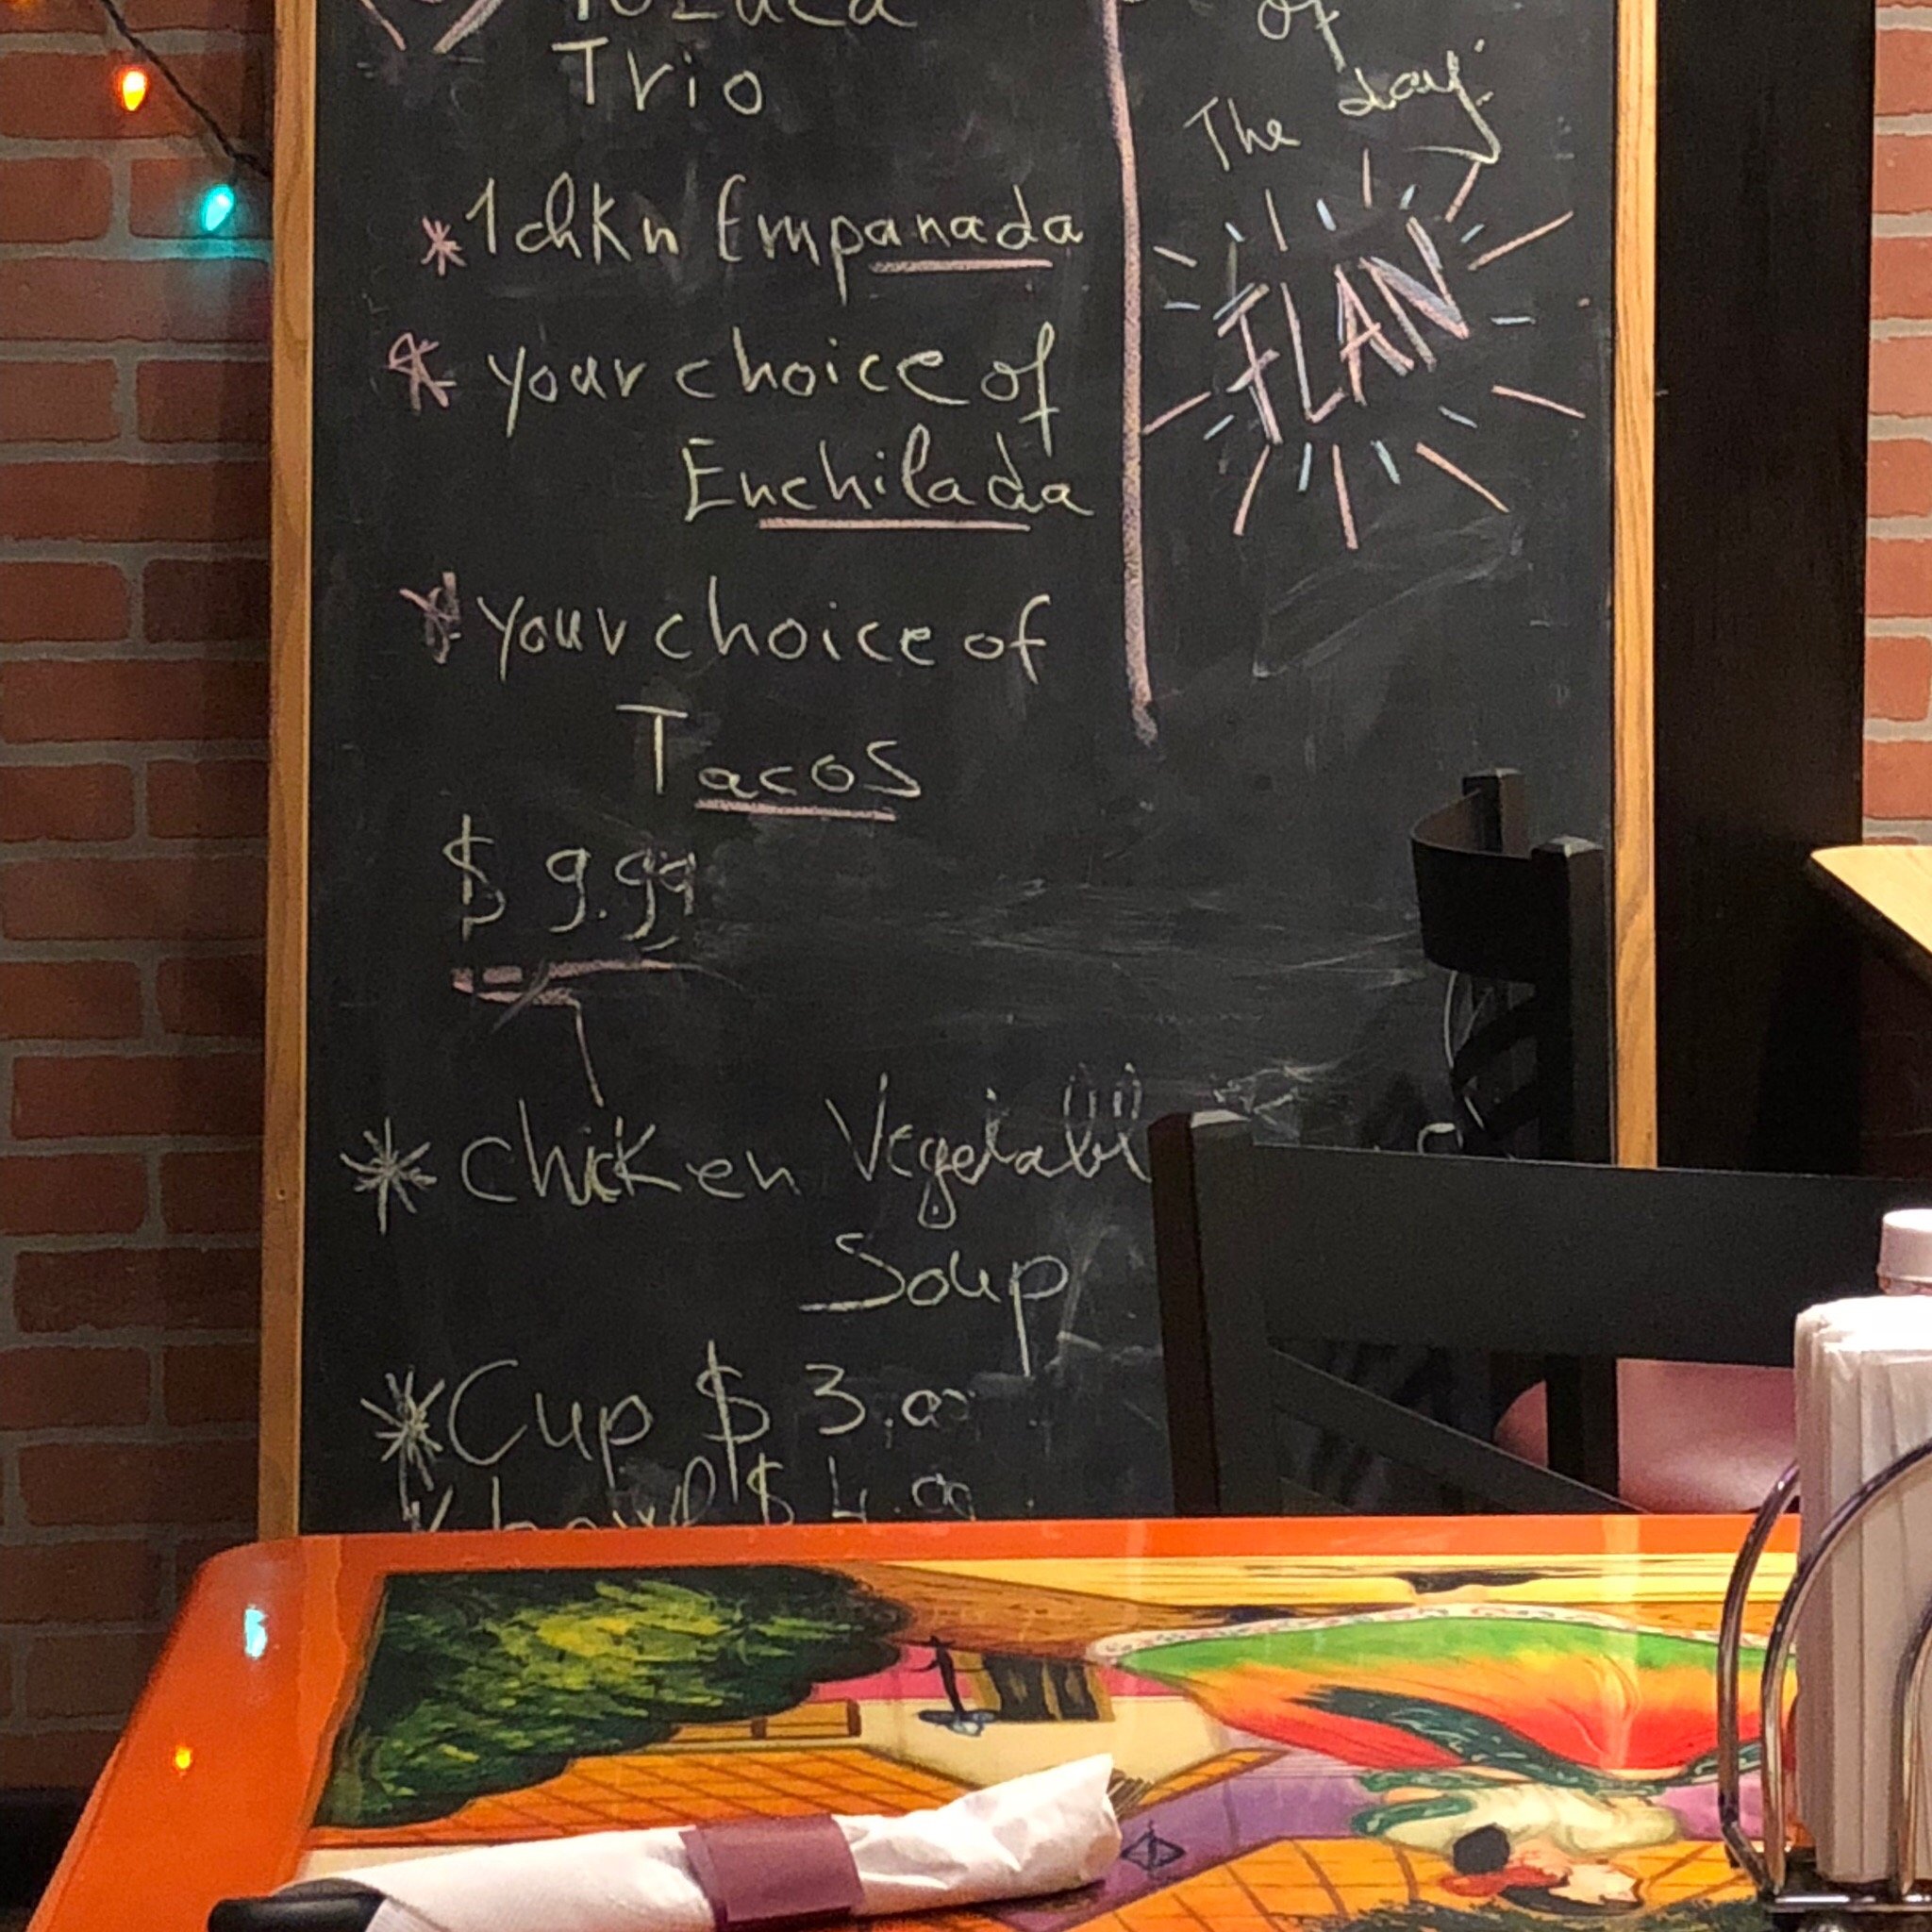 Trio
* 1 chkn Empanada
* your choice of
Enchilada
* your choice of
Tacos
$ 9.99
* chicken Vegetabl
Soup
* Cup $ 3.00
* bowl $ 4.00
of
The day
FLAN